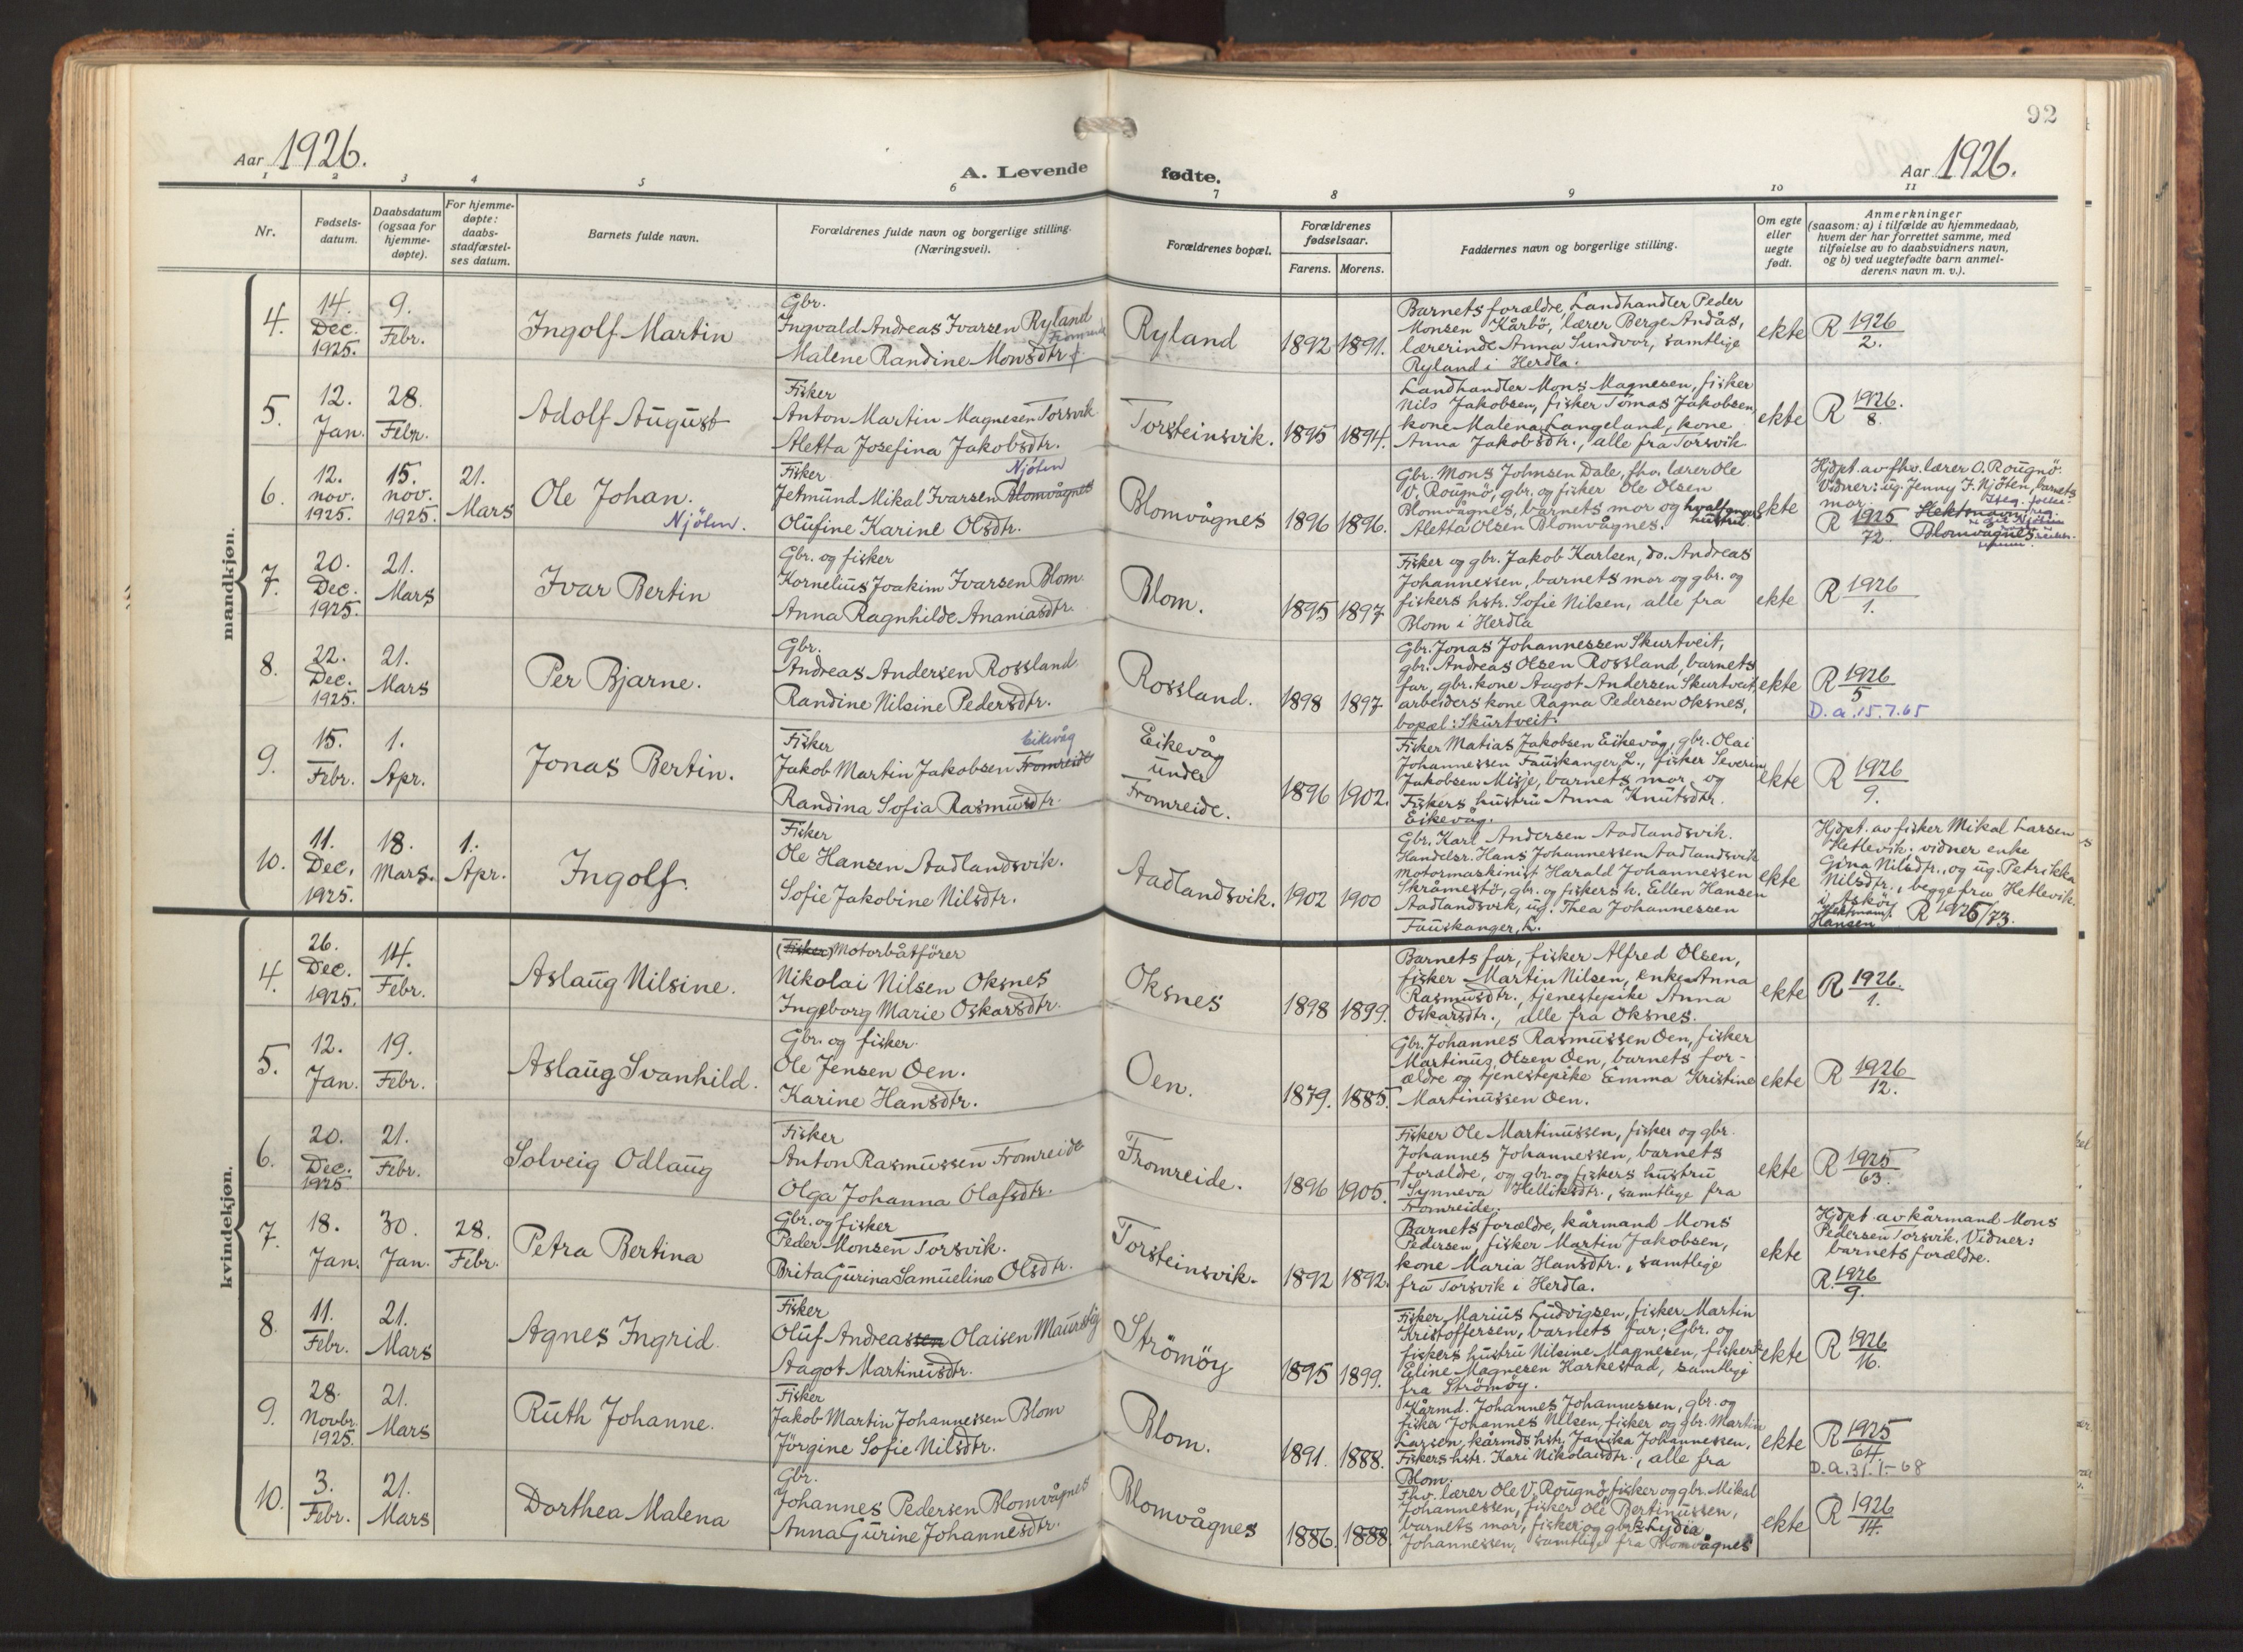 92
Aar 1926.
A. Levende fødte.
Aar 1926.
1 2 3 4 5 6 7 8 9 10 11
Nr.
Fødsels-
datum.
Daabsdatum
(ogsaa for
hjemme-
døpte).
For hjemme-
døpte:
daabs-
stadfæstel-
ses datum.
Barnets fulde navn.
Forældrenes fulde navn og borgerlige stilling.
(Næringsvei).
Forældrenes bopæl.
Forældrenes
fødselsaar.
Farens. Morens.
Faddernes navn og borgerlige stilling.
Om egte
eller
uegte
født.
Anmerkninger
(saasom: a) i tilfælde av hjemmedaab,
hvem der har forrettet samme, med
tilføielse av to daabsvidners navn,
og b) ved uegtefødte barn anmel-
derens navn m. v.).
mandkjøn.
4.
14.
Dec.
1925.
9.
Febr.
Ingolf Martin
Gbr.
Ingvald Andreas Ivarsen Ryland
Malene Randine Monsdtr.
Ryland
1892 1891.
Barnets forældre, Landhandler Peder
Monsen Kårbö, lærer Berge Andås,
lærerinde Anna Sundvor, samtlige
Ryland i Herdla.
ekte
R 1926
2.
5.
12.
Jan.
28.
Febr.
Adolf August
Fisker
Anton Martin Magnesen Torsvik
Aletta Josefina Jakobsdtr.
Torsteinsvik.
1895 1894.
Landhandler Mons Magnesen, fisker
Nils Jakobsen, fisker Tomas Jakobsen,
kone Malena Langeland, kone
Anna Jakobsdtr., alle fra Torsvik
ekte
R 1926.
8.
6.
12.
nov.
1925.
15.
nov.
1925.
21.
Mars
Ole Johan.
Njöten.
Fisker Njöten
Jetmund Mikal Ivarsen Blomvågnes
Olufine Karine Olsdtr.
Blomvågnes
1896 1896.
Gbr. Mons Johnsen Dale, fhv. lærer Ole
V. Rougnö, gbr. og fisker Ole Olsen
Blomvågnes, barnets mor og hvalfanger
Aletta Olsen Blomvågnes. hustru
ekte
Hjdpt. av fhv. lærer O. Rougnö.
Vidner: ug. Jenny J. Njöten, barnets
mor.
R 1925
72.
Blomvågnes
7.
20.
Dec.
1925.
21.
Mars
Ivar Bertin
Gbr. og fisker
Kornelius Joakim Ivarsen Blom
Anna Ragnhilde Ananiasdtr.
Blom.
1895 1897
Fisker og gbr. Jakob Karlsen, do. Andreas
Johannessen, barnets mor og gbr. og
fiskers hstr. Sofie Nilsen, alle fra
Blom i Herdla
ekte
R 1926
1.
8.
22.
Dec.
1925.
21.
Mars
Per Bjarne.
Gbr.
Andreas Andersen Rossland
Randine Nilsine Pedersdtr.
Rossland.
1898 1897
Gbr. Jonas Johannessen Skurtveit,
gbr. Andreas Olsen Rossland, barnets
far, gbr. kone Aagot Andersen Skurtveit,
arbeiders kone Ragna Pedersen Oksnes,
bopæl: Skurtveit.
ekte
R 1926
5
D.a. 15.7.65
9.
15.
Febr.
1.
Apr.
Jonas Bertin.
Fisker Eikevåg
Jakob Martin Jakobsen Fromreide
Randina Sofia Rasmusdtr.
Eikevåg
under
Fromreide.
1896 1902.
Fisker Matias Jakobsen Eikevåg, gbr. Olai
Johannessen Fauskanger, L., fisker Severin
Jakobsen Misje, barnets mor og
Fiskers hustru Anna Knutsdtr.
Eikevåg.
ekte
R 1926
9.
10.
11.
Dec.
1925.
18.
Mars.
1.
Apr.
Ingolf.
Fisker
Ole Hansen Aadlandsvik.
Sofie Jakobine Nilsdtr.
Aadlandsvik.
1902 1900
Gbr. Karl Andersen Aadlandsvik.
Handelsr. Hans Johannessen Aadlandsvik
motormaskinist Harald Johannessen
Skråmestö, gbr. og fiskers h. Eellen Hansen
Aadlandsvik, ug. Thea Johannessen
Fauskanger, L.
ekte
Hjdpt. av fisker Mikal Larsen
Hetlevik. vidner enke
Gina Nilsdtr., og ug. Petrikka
Nilsdtr., begge fra Hetlevik.
i Askøy
Slektsnavn:
Hansen R 1925/73.
kvindekjøn.
4.
26.
Dec.
1925.
14.
Febr.
Aslaug Nilsine.
(Fisker) Motorbåtförer
Nikolai Nilsen Oksnes
Ingeborg Marie Oskarsdtr.
Oksnes
1898 1899.
Barnets far, fisker Alfred Olsen,
fisker Martin Nilsen, enke Anna
Rasmusdtr., tjenestepike Anna
Oskarsdtr., alle fra Oksnes.
ekte
R 1926.
1.
5.
12.
Jan.
19.
Febr.
Aslaug Svanhild.
Gbr. og fisker
Ole Jensen Oen.
Karine Hansdtr.
Oen.
1879. 1885.
Gbr. Johannes Rasmussen Oen, fisker
Martinus Olsen Oen, barnets for-
ældre og tjenestepike Emma Kristine
Martinussen Oen.
ekte
R 1926
12.
6.
20.
Dec.
1925
21.
Febr.
Solveig Odlaug
Fisker
Anton Rasmussen Fromreide
Olga Johanna Olafsdtr.
Fromreide.
1896 1905.
Fisker Ole Martinussen, fisker og gbr.
Johannes Johannessen, barnets
forældre, og gbr. og fiskers hustru
Synneva Helliksdtr., samtlige fra
Fromreide.
ekte
R 1925
63.
7.
18.
Jan.
30.
Jan.
28.
Febr.
Petra Bertina
Gbr. og fisker
Peder Monsen Torsvik.
Brita Gurina Samuelina Olsdtr.
Torsteinsvik.
1892 1892.
Barnets forældre, kårmand Mons
Pedersen, fisker Martin Jakobsen,
kone Maria Hansdtr., samtlige
fra Torsvik i Herdla.
ekte
Hjdpt. av kårmand Mons
Pedersen Torsvik. Vidner:
barnets forældre.
R. 1926
9.
8.
11.
Febr.
21.
Mars
Agnes Ingrid.
Fisker
Oluf Andreassen Olaisen Maurstig
Aagot Martinusdtr.
Strömöy
1895 1899.
Fisker Marius Ludvigsen, fisker Martin
Kristoffersen, barnets far; Gbr. og
fiskers hustru Nilsine Magnesen, fisker
Eline Magnesen Harkestad, samtlige
fra Strömöy.
ekte
R 1926
16.
9.
28.
Novbr.
1925.
21.
Mars
Ruth Johanne.
Fisker
Jakob Martin Johannessen Blom
Jörgine Sofie Nilsdtr.
Blom.
1891. 1888.
Kårmd. Johannes Johannessen, gbr. og
fisker Johannes Nilsen, fisker og gbr. Martin
Larsen, kårmds hstr. Janika Johannessen,
Fiskers hstr. Kari Nikolaisdtr., alle fra
Blom.
ekte
R 1925
64.
D.a. 31.1.-68
10.
3.
Febr.
21.
Mars
Dorthea Malena
Gbr.
Johannes Pedersen Blomvågnes
Anna Gurine Johannesdtr.
Blomvågnes
1886. 1888.
Fhv. lærer Ole V. Rougnö, fisker og gbr. Mikal
Johannessen, fisker Ole Bertinussen,
barnets mor, fisker og gbr. k. Lydia
Johannessen, samtlige fra Blomvågnes
ekte
R 1926
14.